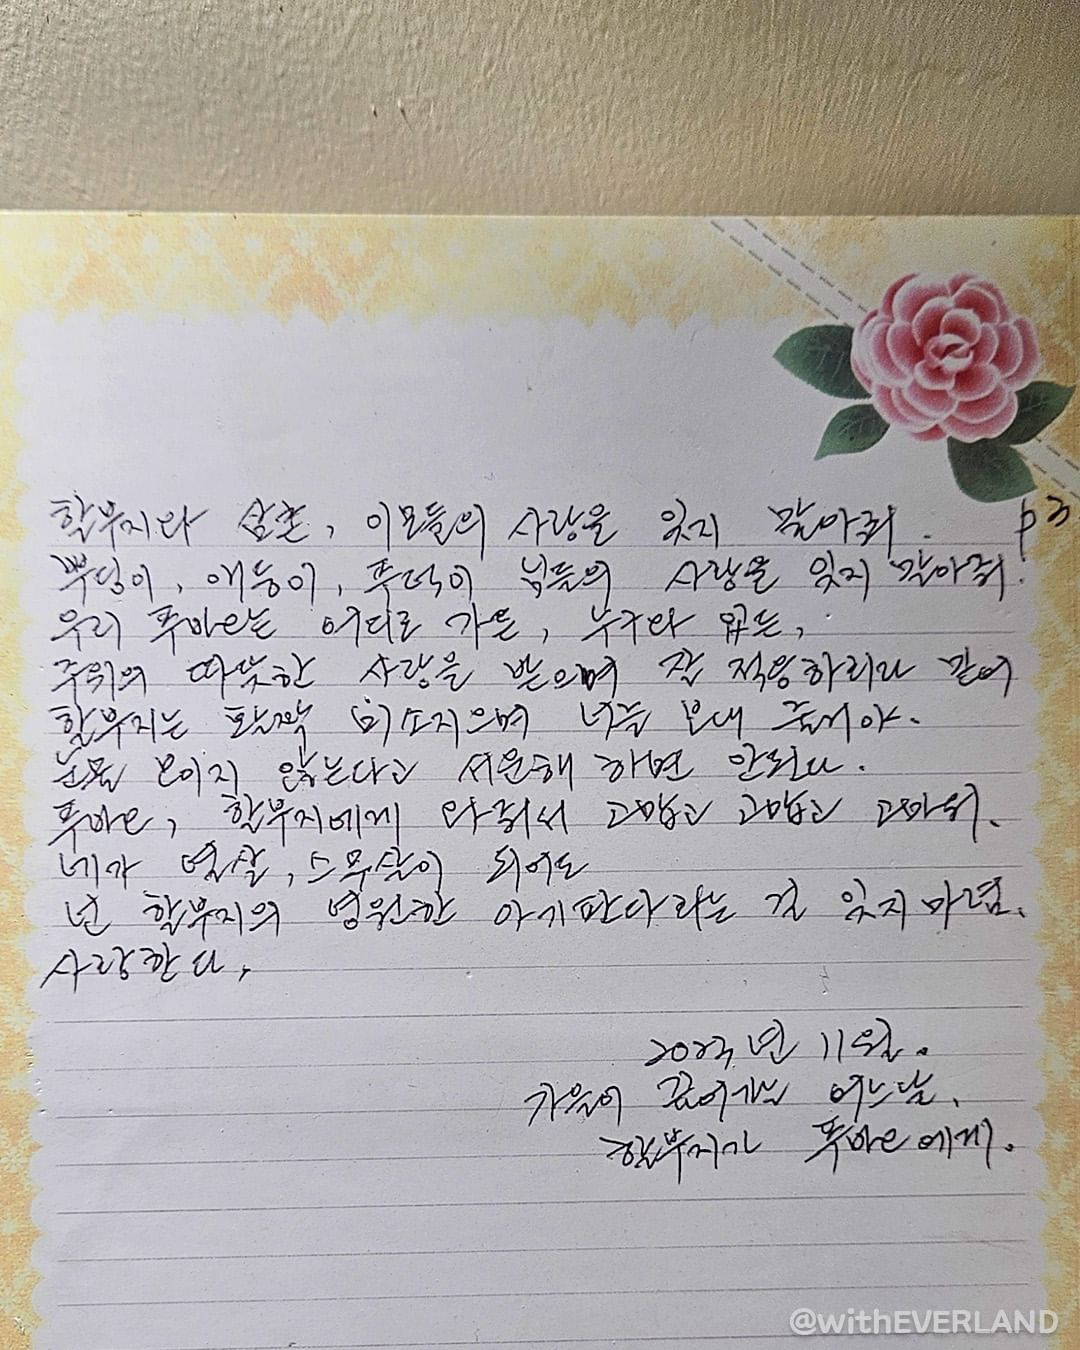 할부지와 삼촌, 이모들의 사랑을 잊지 말아줘. p3
뿌딩이, 애둥이, 푸덕이 님들의 사랑을 잊지 말아줘.
우리 푸바오는 어디로 가든, 누구라 없든,
주위의 따뜻한 사랑을 받으며 잘 적응하리라 믿어
할부지는 활짝 미소지으며 너를 보내 줄게야.
눈물 보이지 않는다고 서운해 하면 안된다.
푸바오, 할부지에게 와줘서 고맙고 고맙고 고마워.
네가 열살, 스무살이 되어도
넌 할부지의 영원한 아기판다라는 걸 잊지마렴.
사랑한다,
2023년 11월.
가을이 끝어가는 어느날,
할부지가 푸바오에게.
@withEVERLAND